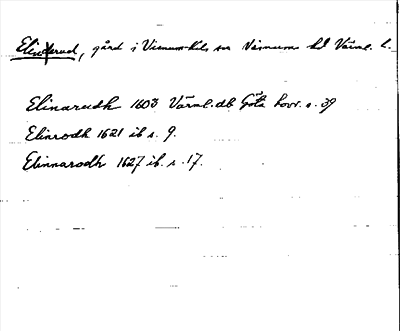 Elinerud, gård i Visnums-Kils sn Visnums hd Värml. l.
Elinarudh 1603 Värml. db Göta hovr. s. 39
Elinrodh 1621 ib s. 9.
Elinnarodh 1627 ib. s. 17.